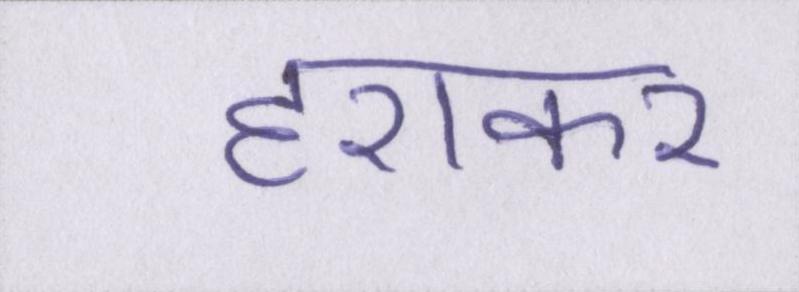 हराकर